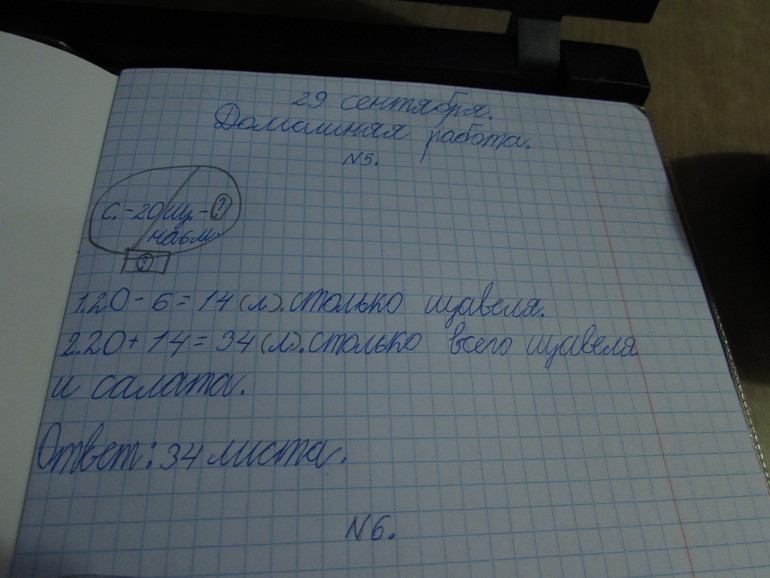 29 сентября.
Домашняя работа.
N5.
С. -20 Щ. - ?
на 6 м.
?
1.20 - 6 = 14 (л). столько щавеля.
2.20 + 14 = 34 (л). столько всего щавеля
и салата.
Ответ: 34 листа.
N6.